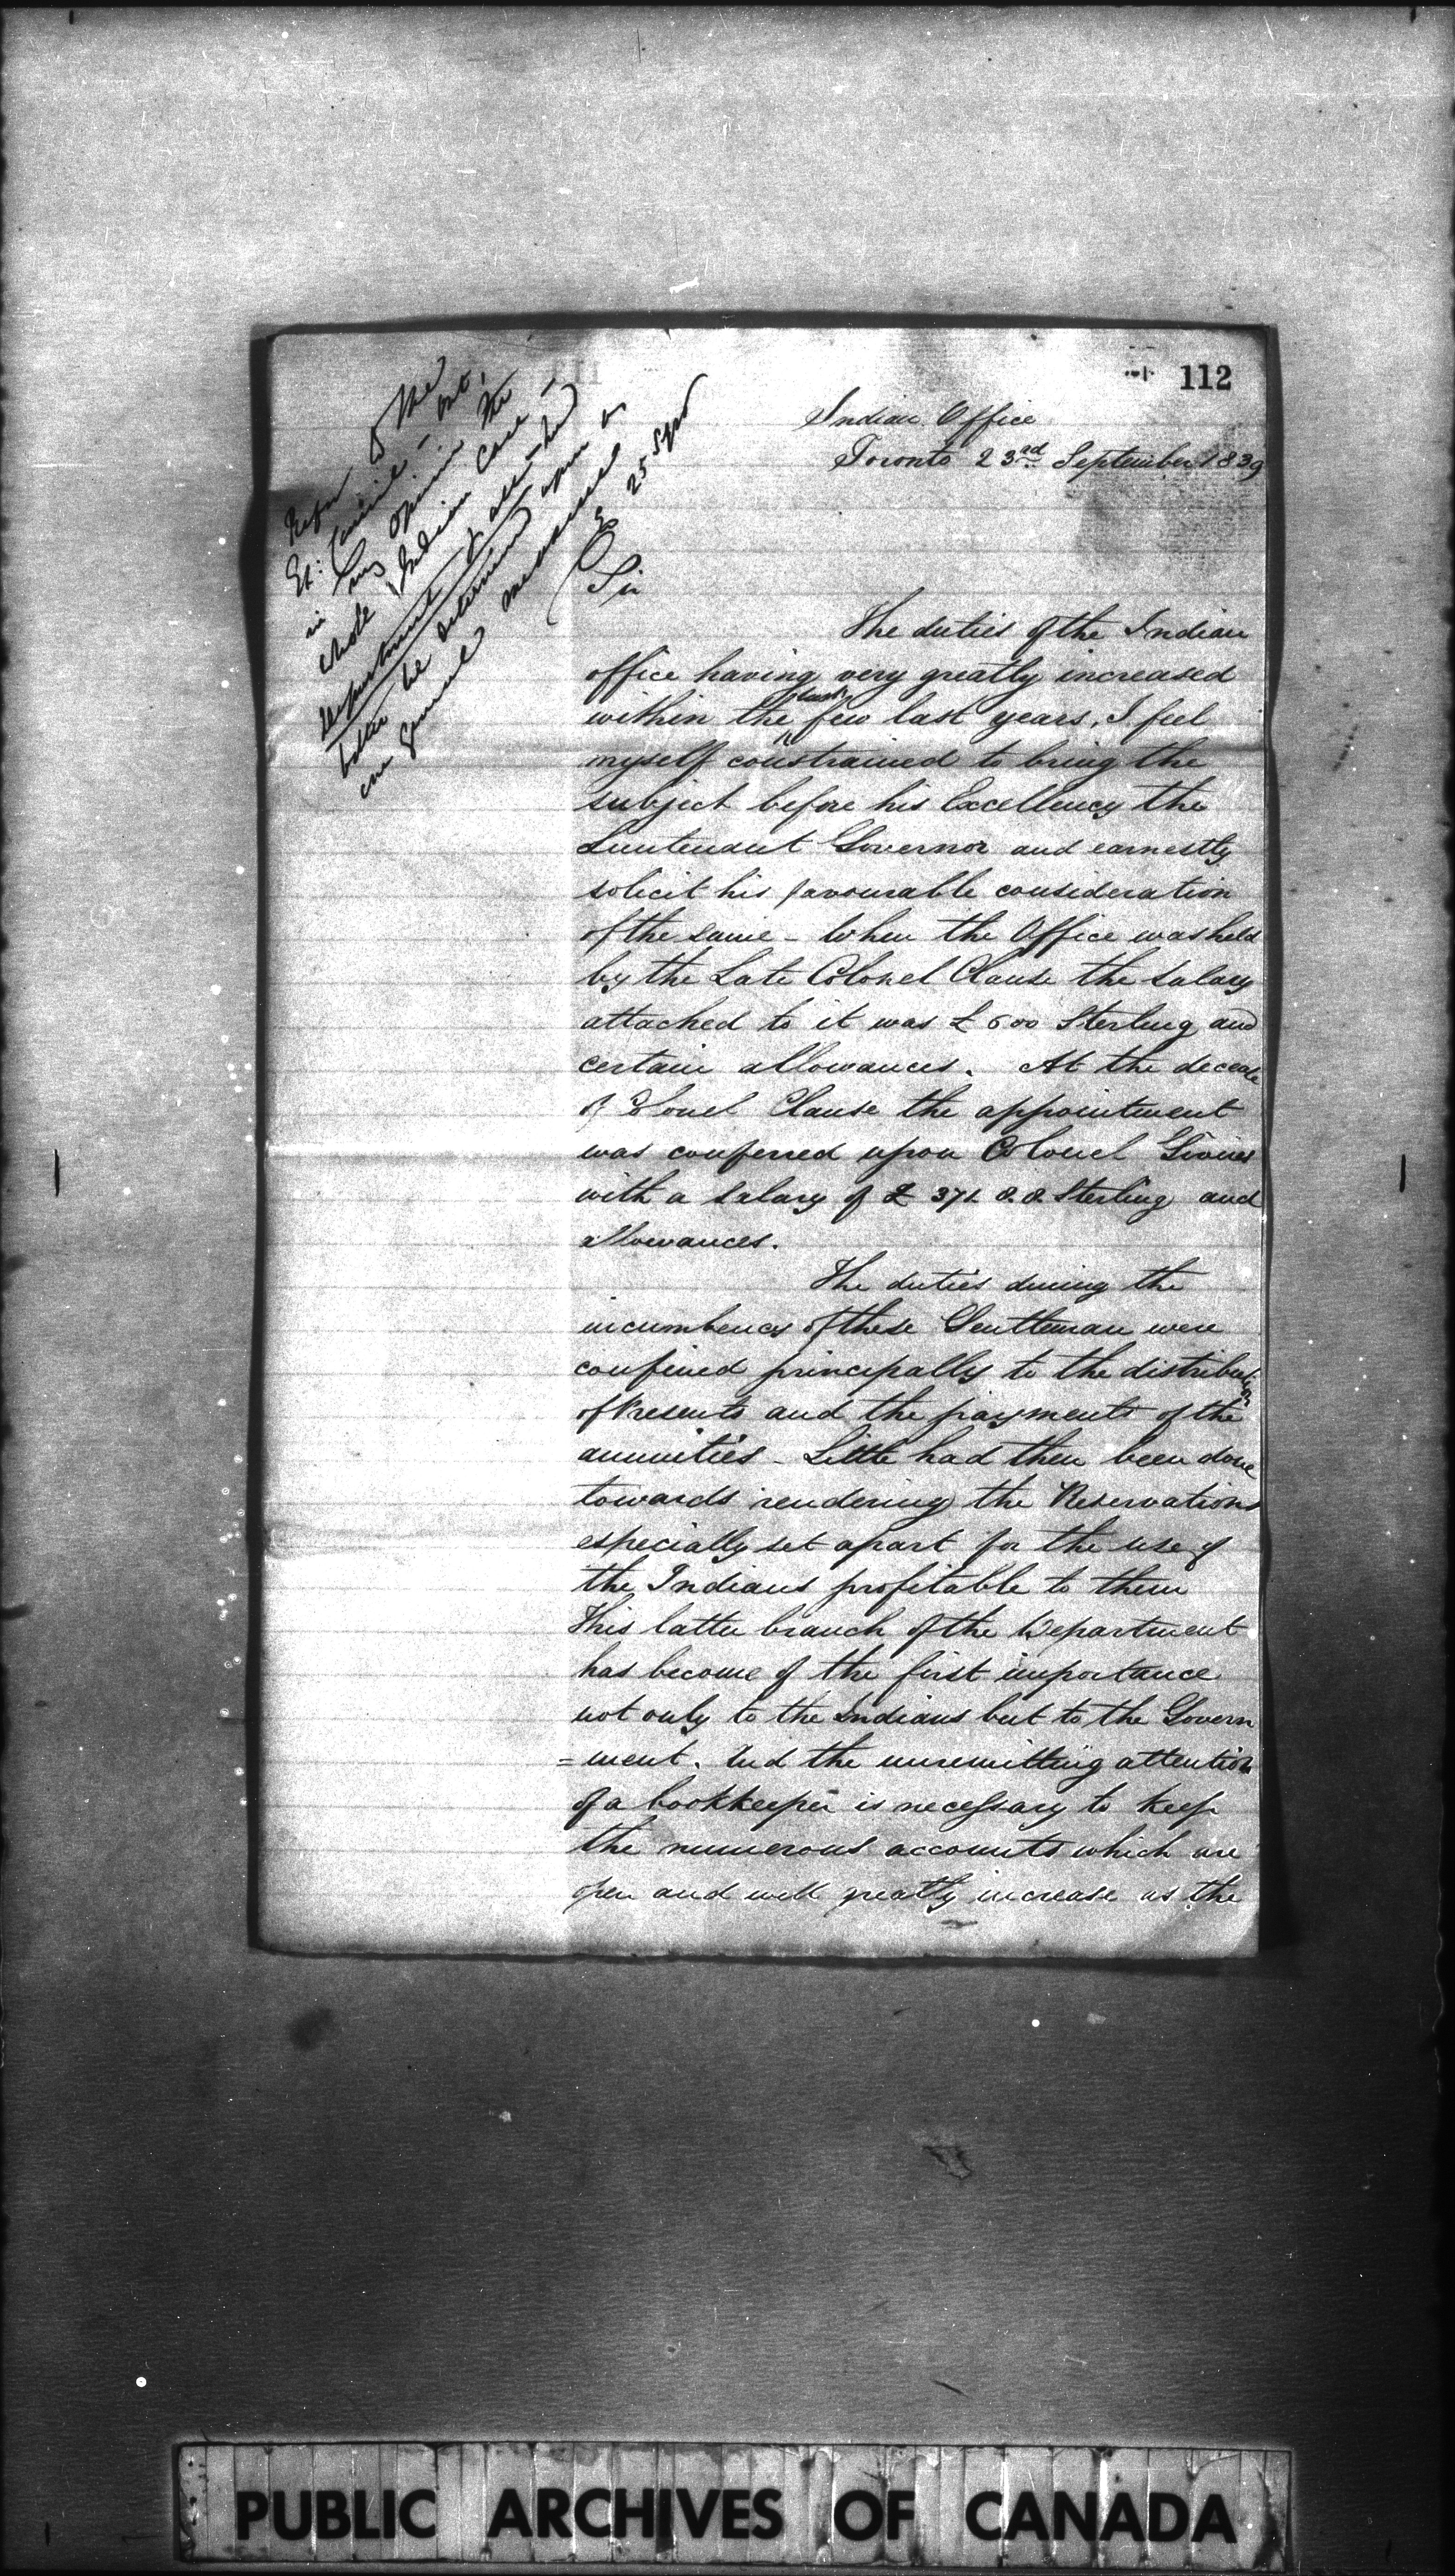 112
Indian Office
Toronto 23rd September 1839
Refer to the
Ex: Council - but,
in my opinion the
whole Indian case -
department & all - had
better be determined upon as
one general measure
25 Sept
Sir
The duties of the Indian
office having very greatly increased
within the last few last years, I feel
myself constrained to bring the
subject before his Excellency the
Lieutenant Governor and earnestly
solicit his favourable consideration
of the same - When the Office was held
by the Late Colonel Clause the Salary
attached to it was £600 Sterling and
certain allowances. At the decease
of Colonel Clause the appointment
was conferred upon Colonel Givins
with a Salary of £ 371. 0. 0. Sterling and
allowances.
The duties during the
incumbency of these Gentleman were
confined principally to the distribution
of Presents and the payments of the
annuities - Little had then been done
towards rendering the Reservations
especially set apart for the use of
the Indians profitable to them
This latter branch of the Department
has become of the first importance
not only to the Indians but to the Govern
=ment. And the unremitting attention
of a bookkeeper is necessary to keep
the numerous accounts which are
open and will greatly increase as the
PUBLIC ARCHIVES OF CANADA